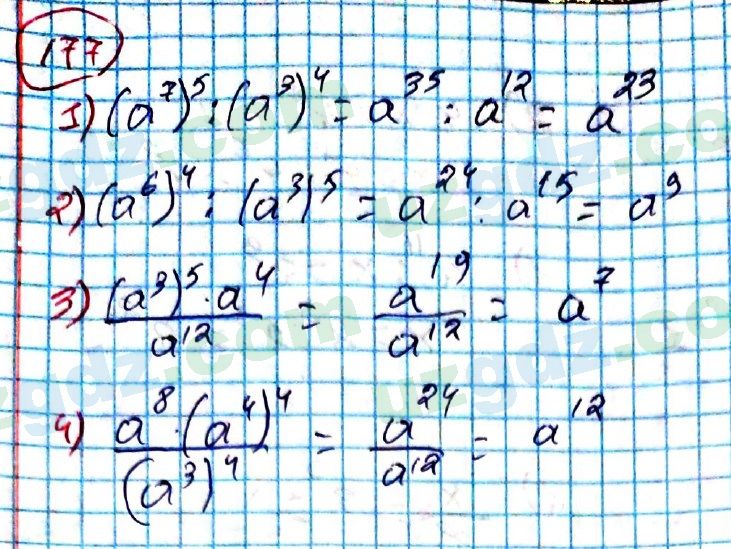 177
1) (a⁷)⁵ : (a³)⁴ = a³⁵ : a¹² = a²³
2) (a⁶)⁴ : (a³)⁵ = a²⁴ : a¹⁵ = a⁹
3) (a³)⁵ · a⁴ / a¹² = a¹⁹ / a¹² = a⁷
4) a⁸ · (a⁴)⁴ / (a³)⁴ = a²⁴ / a¹² = a¹²
uzgdz.com